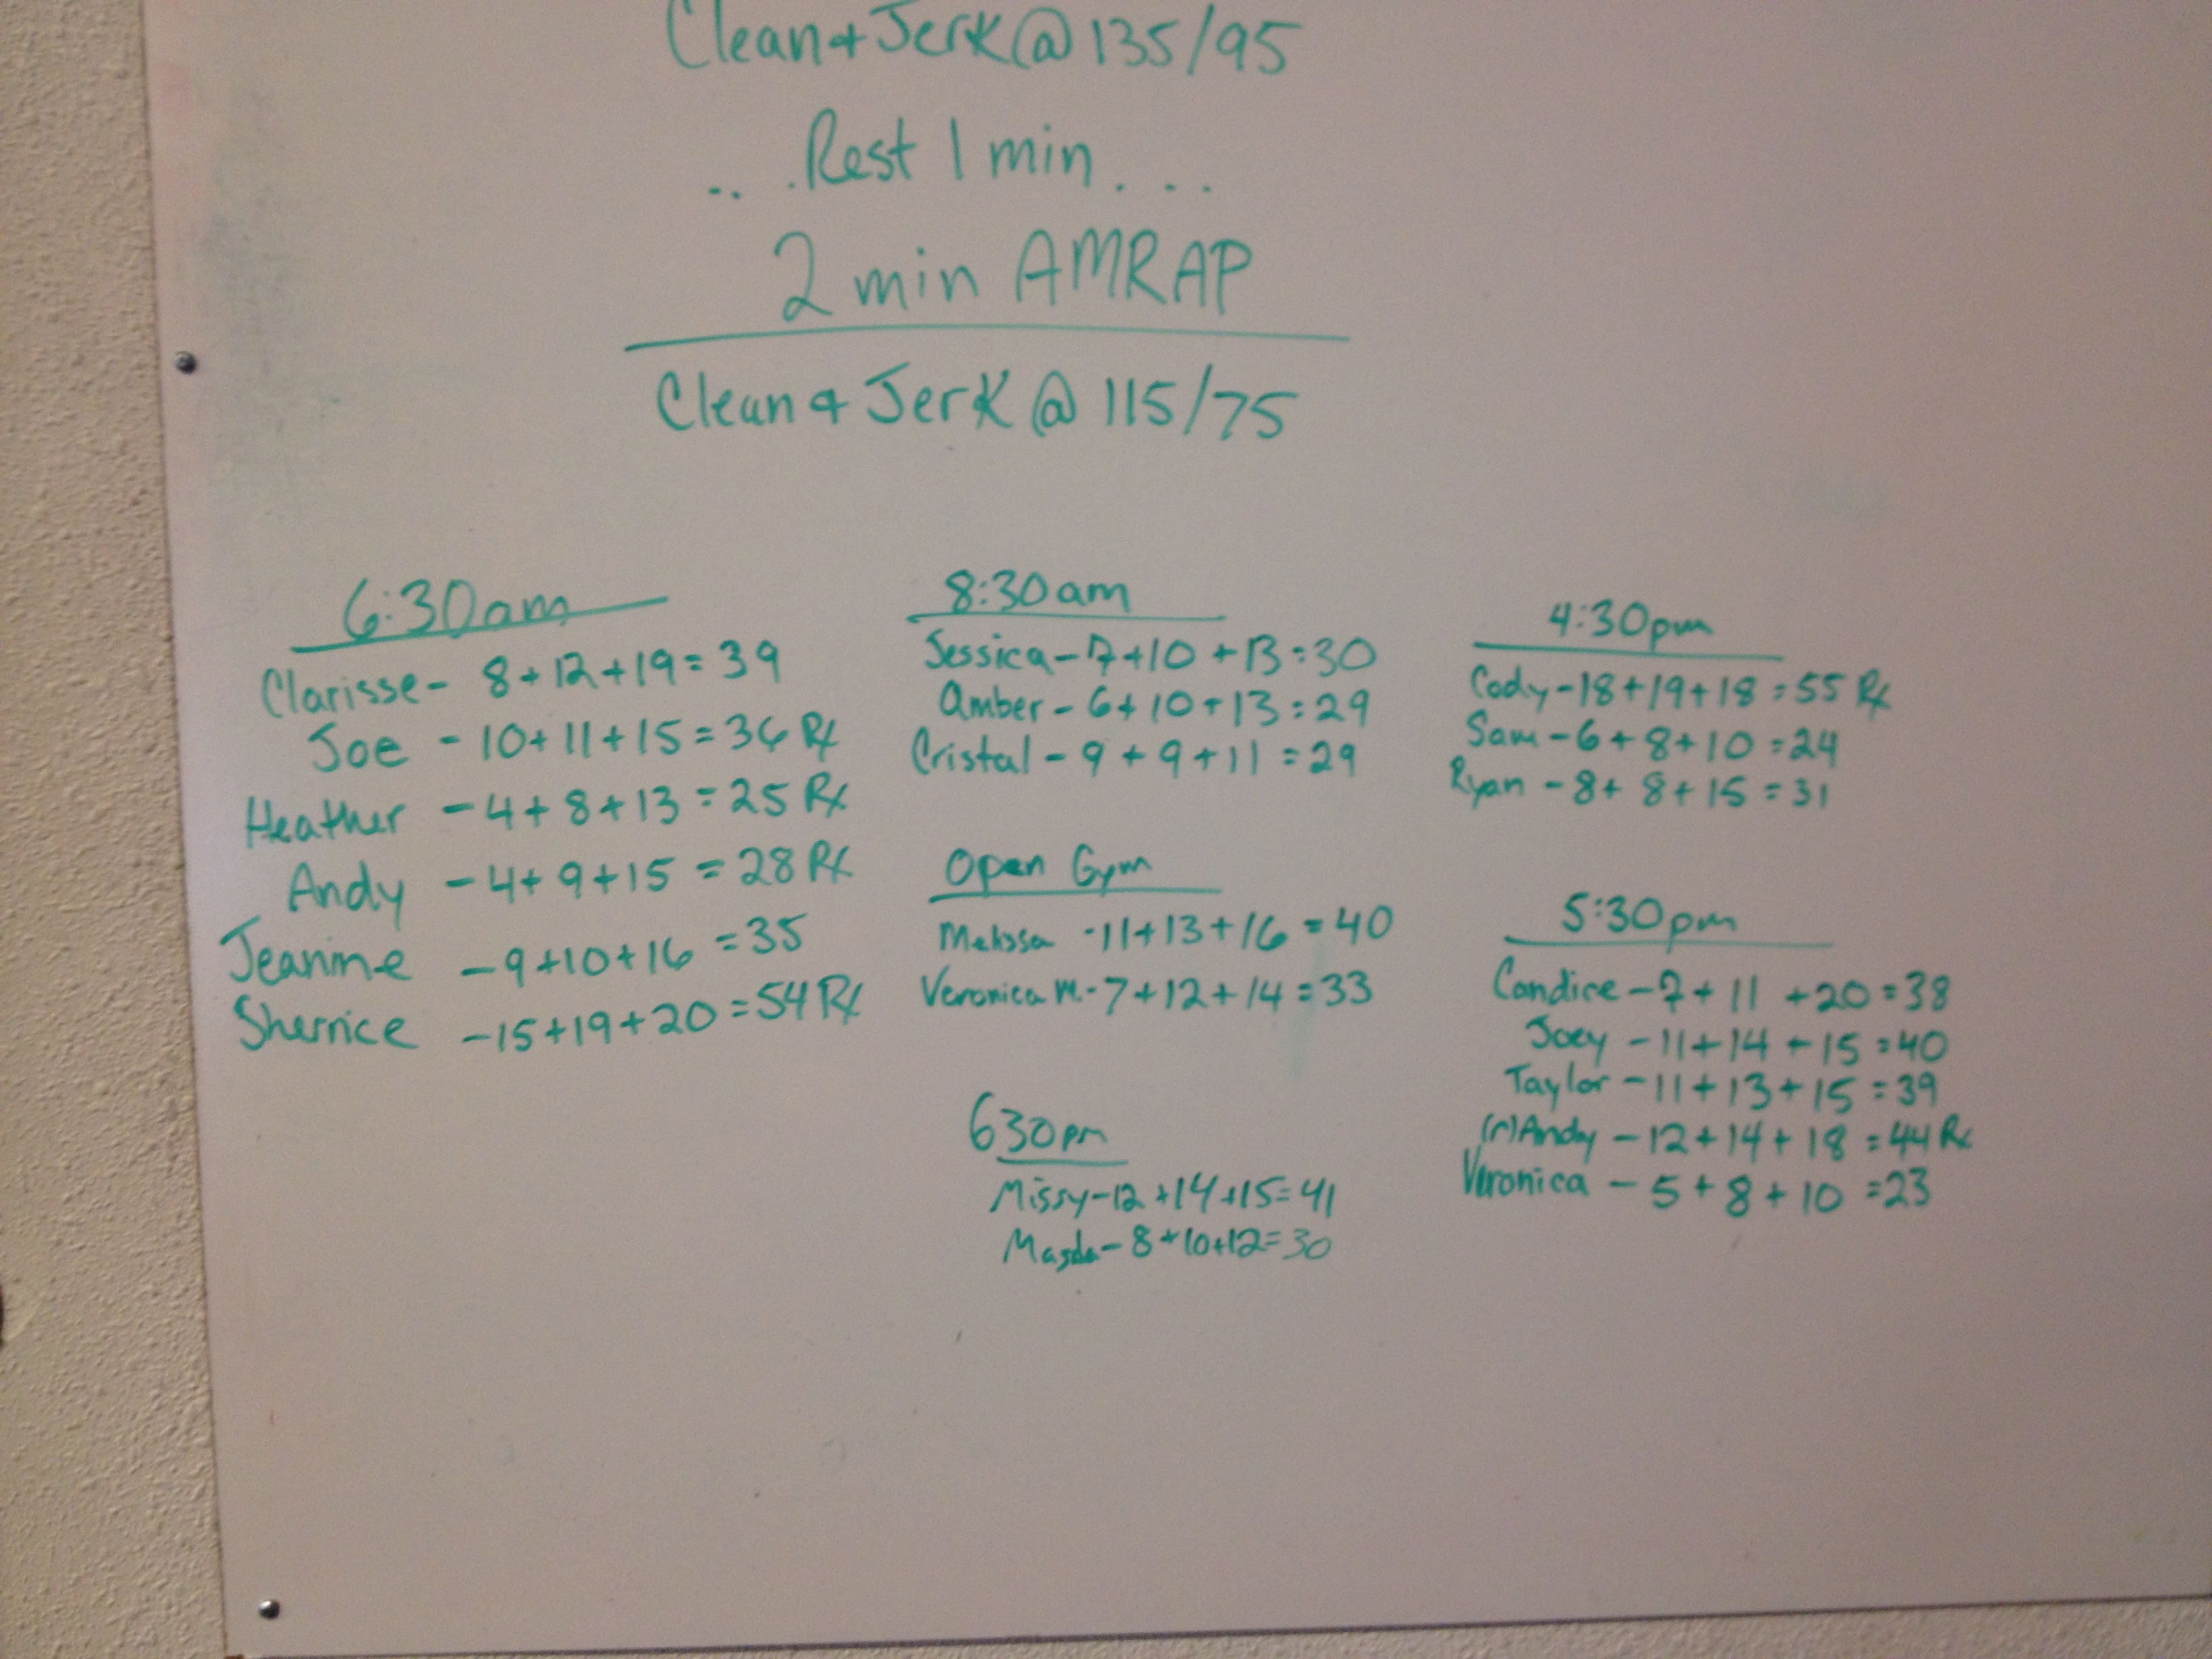 Clean + Jerk @ 135/95
... Rest 1 min ...
2 min AMRAP
Clean + Jerk @ 115/75
6:30am
Clarisse - 8+12+19=39
Joe - 10+11+15=36 Rx
Heather - 4+8+13=25 Rx
Andy - 4+9+15=28 Rx
Jeanine - 9+10+16=35
Sherrice - 15+19+20=54 Rx
8:30am
Jessica - 7+10+13=30
Amber - 6+10+13=29
Cristal - 9+9+11=29
Open Gym
Melissa - 11+13+16=40
Veronica M. - 7+12+14=33
630pm
Missy - 12+14+15=41
Magda - 8+10+12=30
4:30pm
Cody - 18+19+18=55 Rx
Sam - 6+8+10=24
Ryan - 8+8+15=31
5:30pm
Candice - 7+11+20=38
Joey - 11+14+15=40
Taylor - 11+13+15=39
(r)Andy - 12+14+18=44 Rx
Veronica - 5+8+10=23